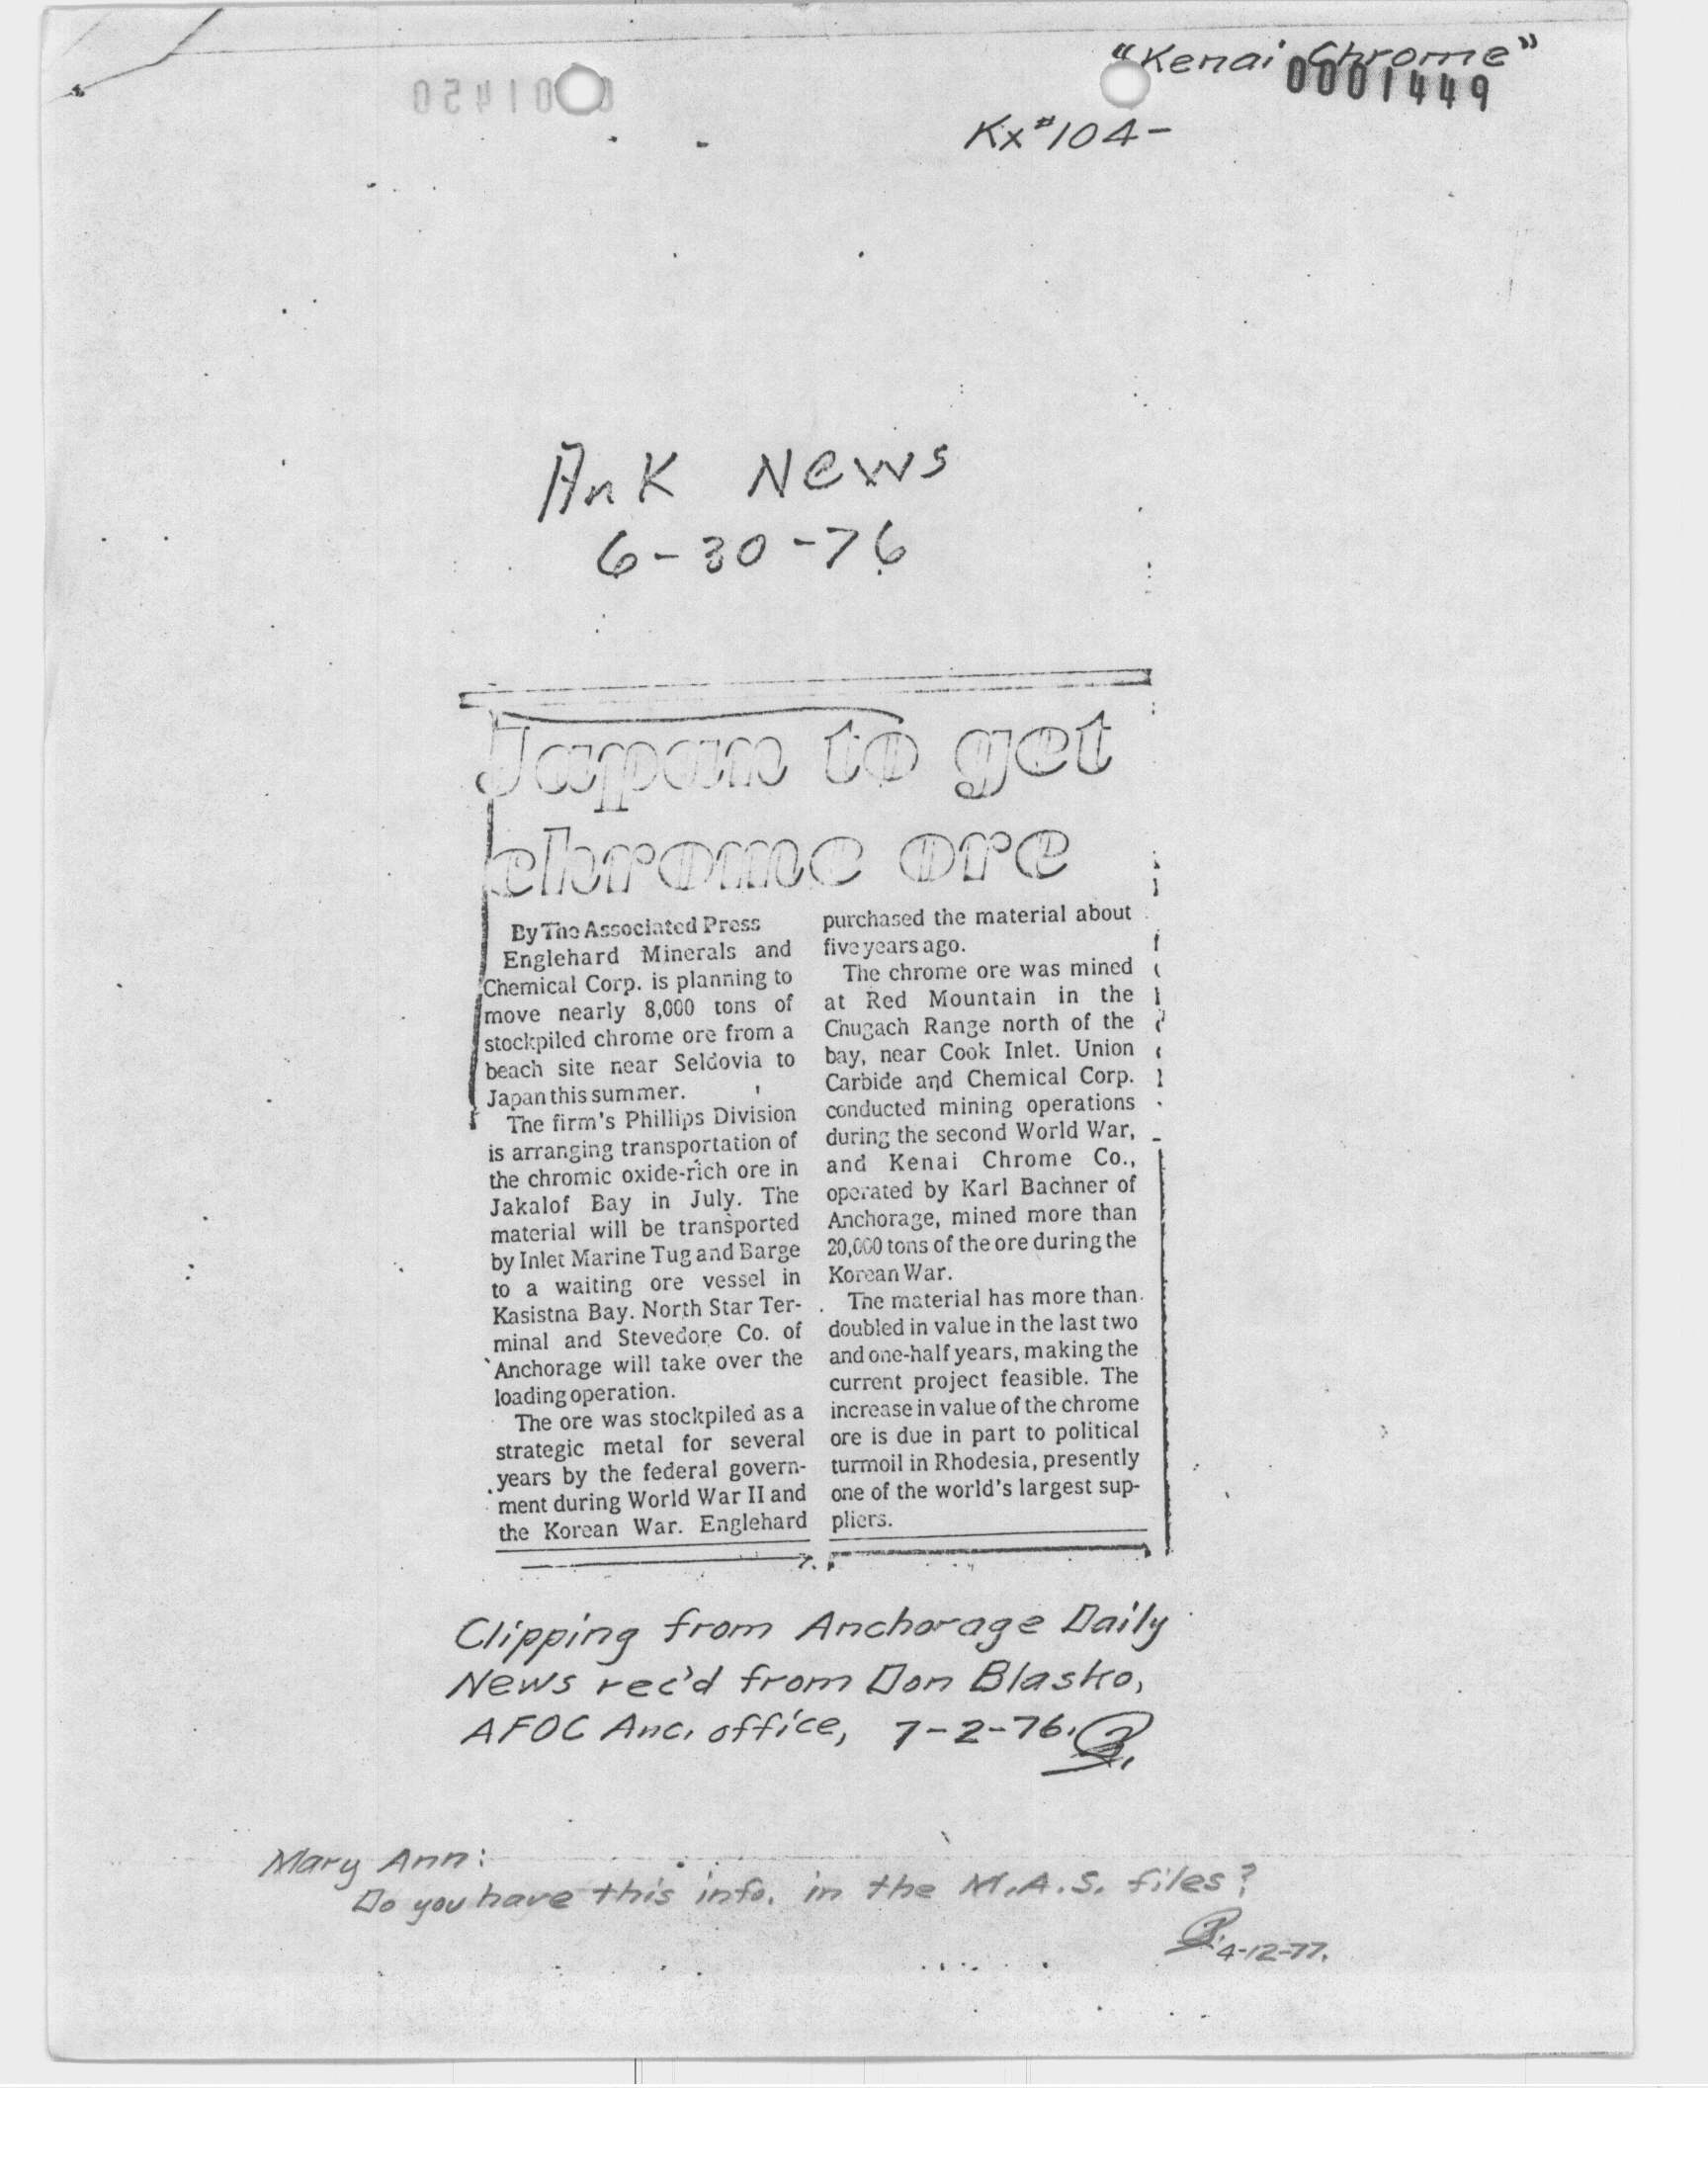 "Kenai Chrome"
0001449
0001450
Kx#104-
Ank News
6-30-76
Japan to get
chrome ore
By The Associated Press
Englehard Minerals and
Chemical Corp. is planning to
move nearly 8,000 tons of
stockpiled chrome ore from a
beach site near Seldovia to
Japan this summer.
The firm's Phillips Division
is arranging transportation of
the chromic oxide-rich ore in
Jakalof Bay in July. The
material will be transported
by Inlet Marine Tug and Barge
to a waiting ore vessel in
Kasistna Bay. North Star Ter-
minal and Stevedore Co. of
Anchorage will take over the
loading operation.
The ore was stockpiled as a
strategic metal for several
years by the federal govern-
ment during World War II and
the Korean War. Englehard
purchased the material about
five years ago.
The chrome ore was mined
at Red Mountain in the
Chugach Range north of the
bay, near Cook Inlet. Union
Carbide and Chemical Corp.
conducted mining operations
during the second World War,
and Kenai Chrome Co.,
operated by Karl Bachner of
Anchorage, mined more than
20,000 tons of the ore during the
Korean War.
The material has more than
doubled in value in the last two
and one-half years, making the
current project feasible. The
increase in value of the chrome
ore is due in part to political
turmoil in Rhodesia, presently
one of the world's largest sup-
pliers.
Clipping from Anchorage Daily
News rec'd from Don Blasko,
AFOC Anc. office, 7-2-76.
Mary Ann:
Do you have this info. in the M.A.S. files?
4-12-77.